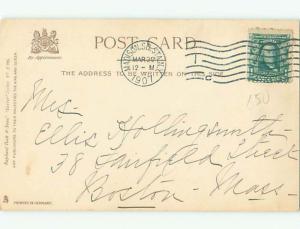 POST CARD
By Appointment.
THE ADDRESS TO BE WRITTEN ON THIS SIDE
MADISON SQ. STA. N.Y.
MAR 22
12-M
1907
150
Mrs.
Ellis Hollingsworth
38 Fairfield Street
Boston-
Mass-
PRINTED IN GERMANY.